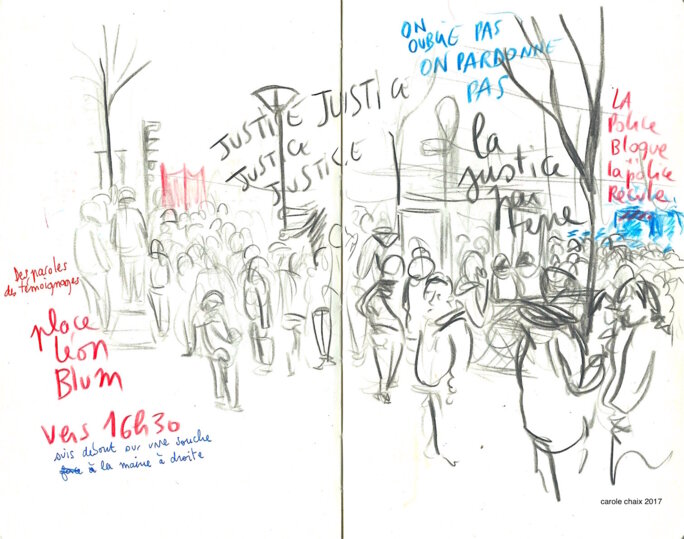 ON
OUBLIE PAS
ON PARDONNE
PAS
JUSTICE JUSTICE
JUSTICE
JUSTICE
la
justice
par
terre
LA
Police
Bloque
la police
Recule
Des paroles
des témoignages
place
Léon
Blum
Vers 16h30
suis debout sur une souche
face à la mairie à droite
carole chaix 2017